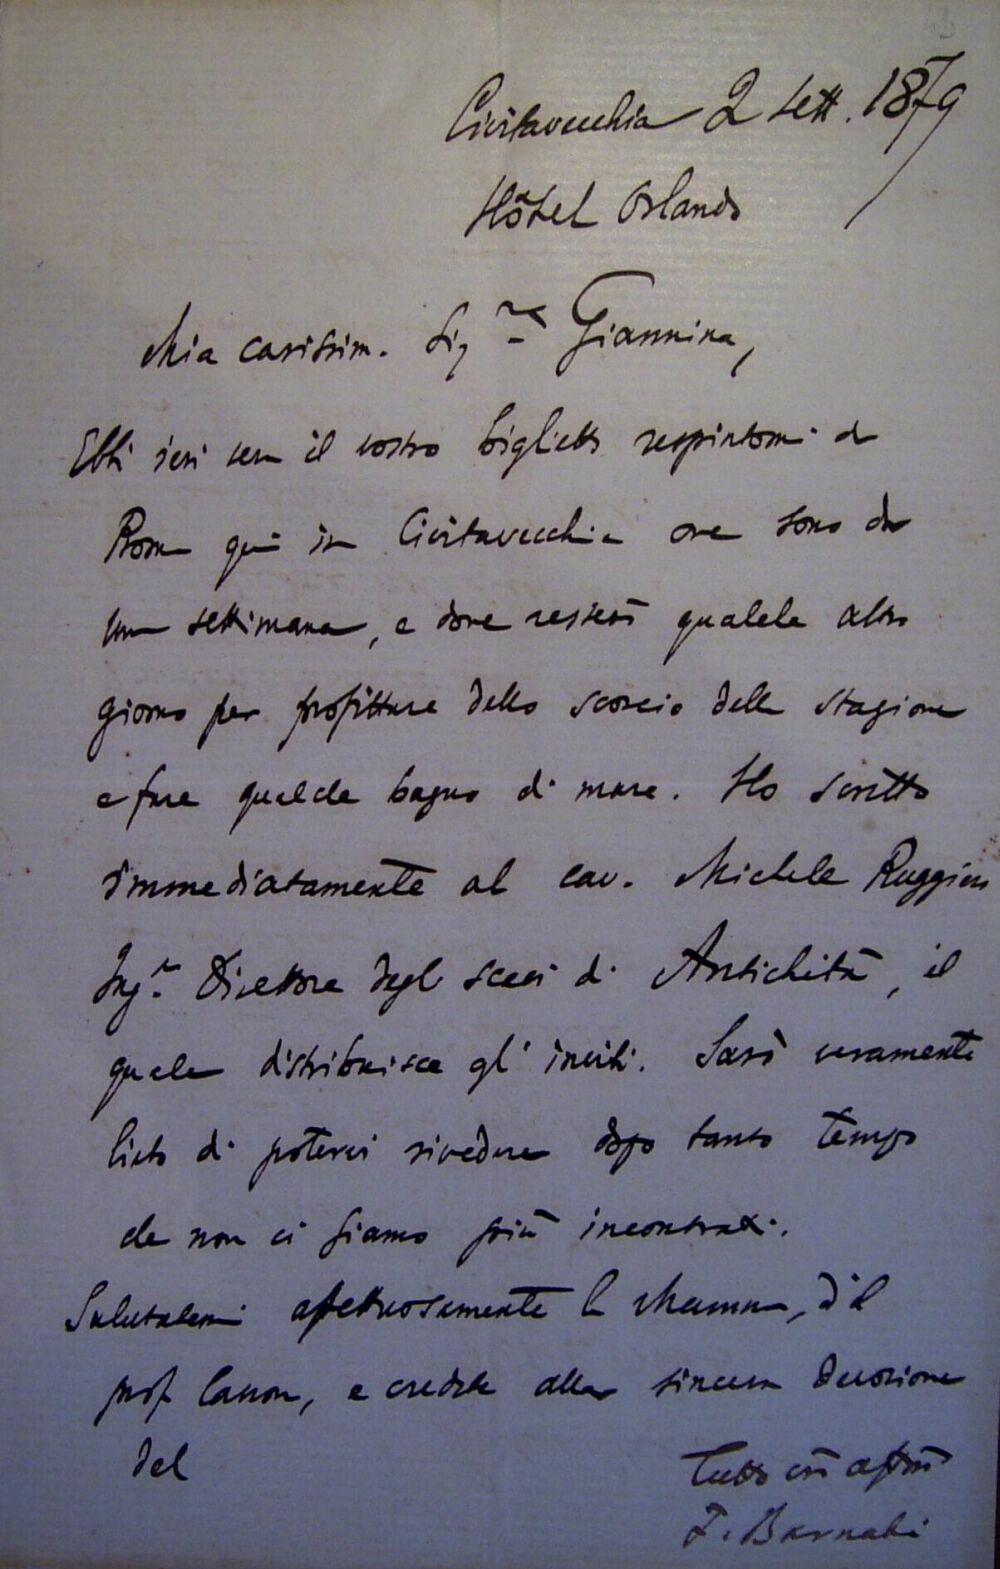 Civitavecchia 2 Sett. 1879
Hôtel Orlando
Mia carissim. Sig.ra Giannina,
Ebbi ieri sera il vostro biglietto respintomi da
Roma qui in Civitavecchia ove sono da
una settimana, e dove resterò qualche altro
giorno per profittare dello scorcio della stagione
e fare qualche bagno di mare. Ho scritto
immediatamente al cav. Michele Ruggiero
Ing.r Direttore degli scavi di Antichità, il
quale distribuisce gl' inviti. Sarò veramente
lieto di potervi rivedere dopo tanto tempo
che non ci siamo più incontrati.
Salutatemi affettuosamente la Mamma, ed il
prof. , e credete alla sincera devozione
del
Tutto vro affmo
F. Barnabei